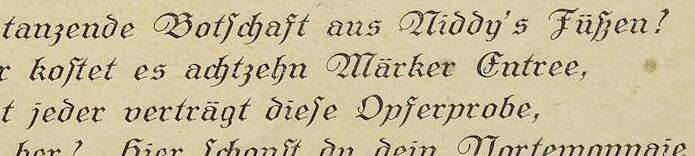 tanzende Botschaft aus Niddy's Füßen?
r kostet es achtzehn Märker Entree,
t jeder verträgt diese Opferprobe,
her? Hier schonst du dein Portemonnaie